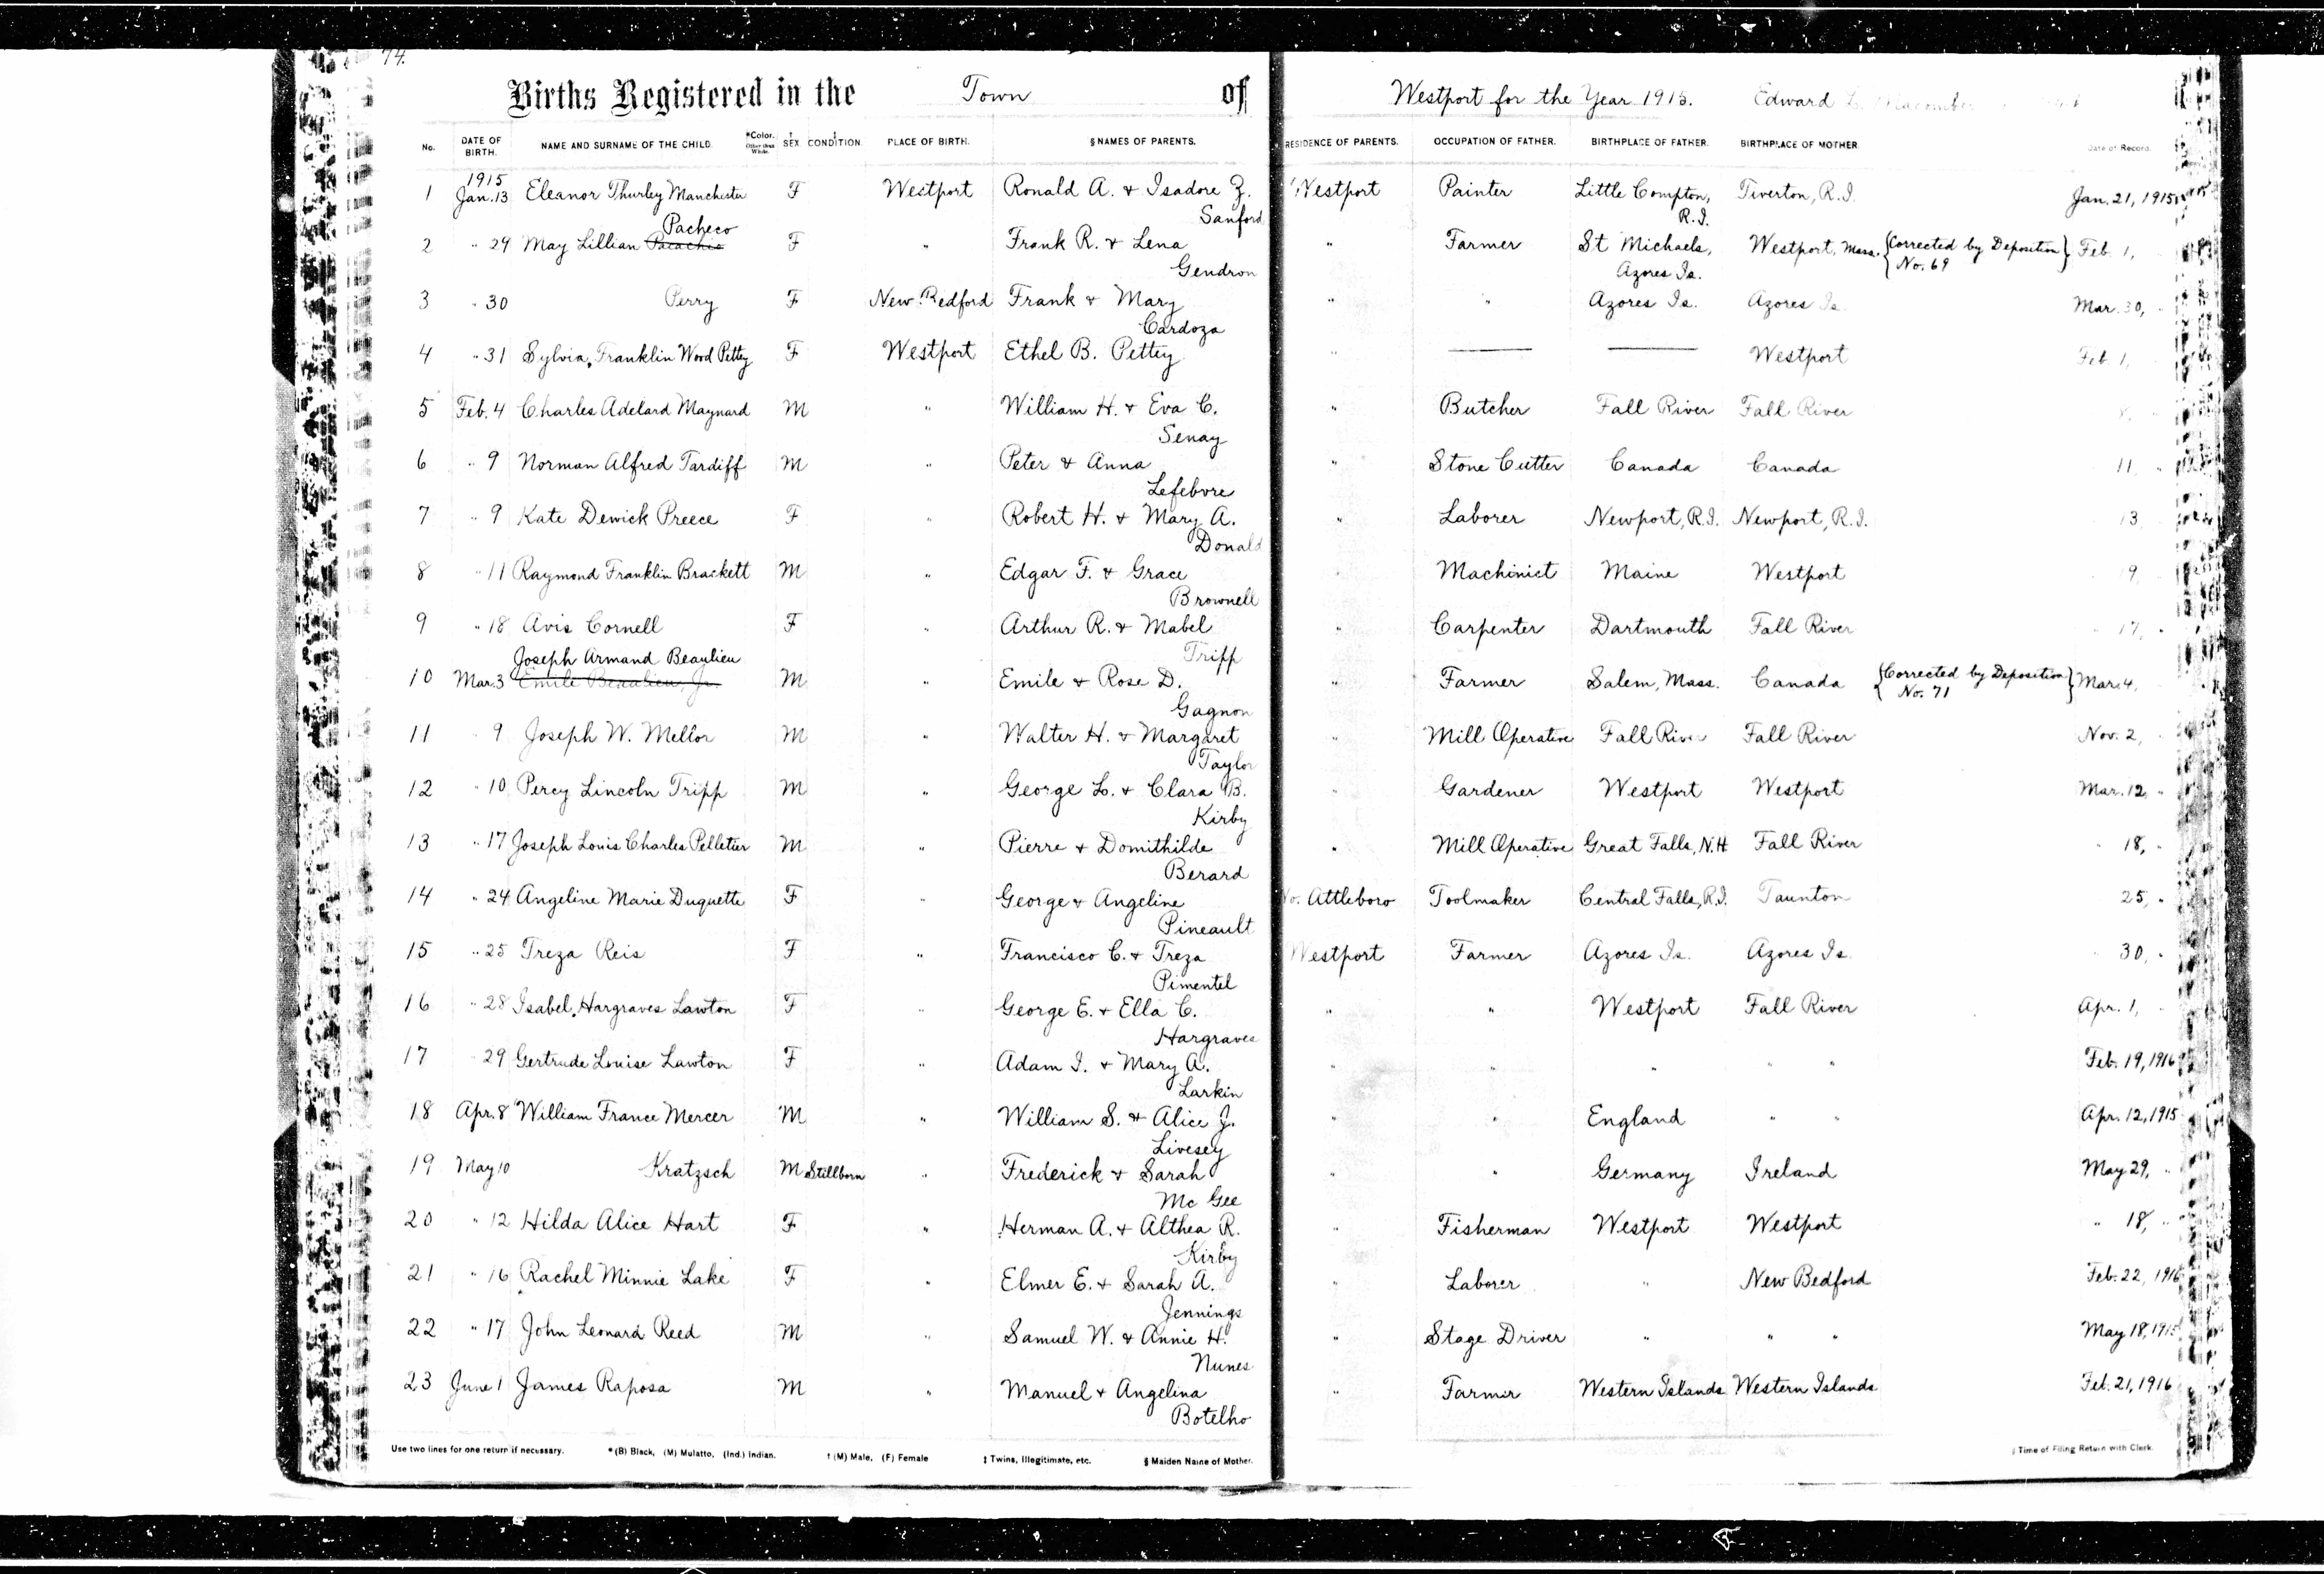 74.
Births Registered in the Town of Westport for the Year 1915. Edward L. Macomber
No. DATE OF BIRTH. NAME AND SURNAME OF THE CHILD. *Color. Other than White. † SEX ‡ CONDITION. PLACE OF BIRTH. § NAMES OF PARENTS. RESIDENCE OF PARENTS. OCCUPATION OF FATHER. BIRTHPLACE OF FATHER. BIRTHPLACE OF MOTHER. Date of Record.
1915
1 Jan. 13 Eleanor Thurley Manchester F Westport Ronald A. & Isadore Z. Westport Painter Little Compton, Tiverton, R.I. Jan. 21, 1915
Pacheco Sanford R.I.
2 " 29 May Lillian Pacachio F " Frank R. & Lena " Farmer St Michaels, Westport, Mass. {Corrected by Deposition} Feb. 1,
Gendron Azores Is. No. 69
3 " 30 Perry F New Bedford Frank & Mary " " Azores Is. Azores Is. Mar. 30, "
Cardoza
4 " 31 Sylvia, Franklin Wood Pettey F Westport Ethel B. Pettey " — — Westport Feb. 1,
5 Feb. 4 Charles Adelard Maynard M " William H. & Eva C. " Butcher Fall River Fall River 8,
Senay
6 " 9 Norman Alfred Tardiff M " Peter & Anna " Stone Cutter Canada Canada 11, "
Lefebvre
7 " 9 Kate Dewick Preece F " Robert H. & Mary A. " Laborer Newport, R.I. Newport, R.I. 13,
Donald
8 " 11 Raymond Franklin Brackett M " Edgar F. & Grace Machinist Maine Westport 19,
Brownell
9 " 18 Avis Cornell F " Arthur R. & Mabel " Carpenter Dartmouth Fall River " 17, "
Joseph Armand Beaulieu Tripp
10 Mar. 3 Emile Beaulieu, Jr. M " Emile & Rose D. " Farmer Salem, Mass. Canada {Corrected by Deposition} Mar. 4,
Gagnon No. 71
11 " 9 Joseph W. Mellor M " Walter H. & Margaret " Mill Operative Fall River Fall River Nov. 2, "
Taylor
12 " 10 Percy Lincoln Tripp M " George L. & Clara B. " Gardener Westport Westport Mar. 12, "
Kirby
13 " 17 Joseph Louis Charles Pelletier M " Pierre & Domithilde " Mill Operative Great Falls, N.H Fall River " 18, "
Berard
14 " 24 Angeline Marie Duquette F " George & Angeline No. Attleboro Toolmaker Central Falls, R.I. Taunton 25, "
Pineault
15 " 25 Treza Reis F " Francisco C. & Treza Westport Farmer Azores Is. Azores Is. " 30, "
Pimentel
16 " 28 Isabel, Hargraves Lawton F " George E. & Ella C. " " Westport Fall River Apr. 1, "
Hargraves
17 " 29 Gertrude Louise Lawton F " Adam I. & Mary A. " " " " " Feb. 19, 1916
Larkin
18 Apr. 8 William France Mercer M " William S. & Alice J. " " England " " Apr. 12, 1915
Livesey
19 May 10 Kratzsch M Stillborn " Frederick & Sarah " " Germany Ireland May 29, "
Mc Gee
20 " 12 Hilda Alice Hart F " Herman A. & Althea R. " Fisherman Westport Westport " 18, "
Kirby
21 " 16 Rachel Minnie Lake F " Elmer E. & Sarah A. " Laborer " New Bedford Feb. 22, 1916
Jennings
22 " 17 John Leonard Reed M " Samuel W. & Annie H. " Stage Driver " " " May 18, 1915
Nunes
23 June 1 James Raposa M " Manuel & Angelina " Farmer Western Islands Western Islands Feb. 21, 1916
Botelho
Use two lines for one return if necessary. * (B) Black, (M) Mulatto, (Ind.) Indian. † (M) Male, (F) Female ‡ Twins, Illegitimate, etc. § Maiden Name of Mother. | Time of Filing Return with Clerk.